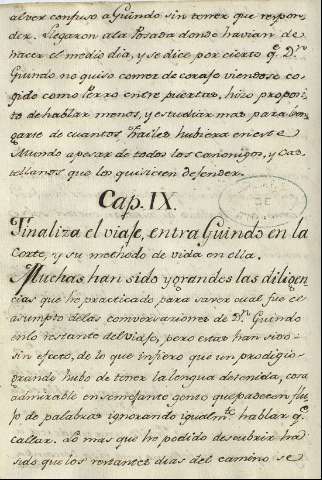 al ver confuso a Guindo sin tener que respon-
der. Llegaron a la Posada donde havian de
hacer el medio dia, y se dice por cierto q.e D.n
Guindo no quiso comer de corage viendose co-
gido como Perro entre puertas, hizo proposi-
to de hablar menos, y estudiar mas para ven-
garse de cuantos frailes hubiera en este
Mundo apesar de todos los Canonigos, y Cas-
tellanos que los quisiesen defender.
Cap. IX.
Finaliza el viaje, entra Guindo en la
Corte, y su methodo de vida en ella.
Muchas han sido y grandes las diligen-
cias que he practicado para saver cual fue el
asumpto de las conversaciones de D.n Guindo
en lo restante del viaje, pero estas han sido
sin efecto, de lo que infiero que un prodigio
grande hubo de tener la lengua detenida, cosa
admirable en semejante gente que padecen flu-
jo de palabras ignorando igualm.te hablar q.e
callar. Lo mas que he podido descubrir ha
sido que los restantes dias del camino se